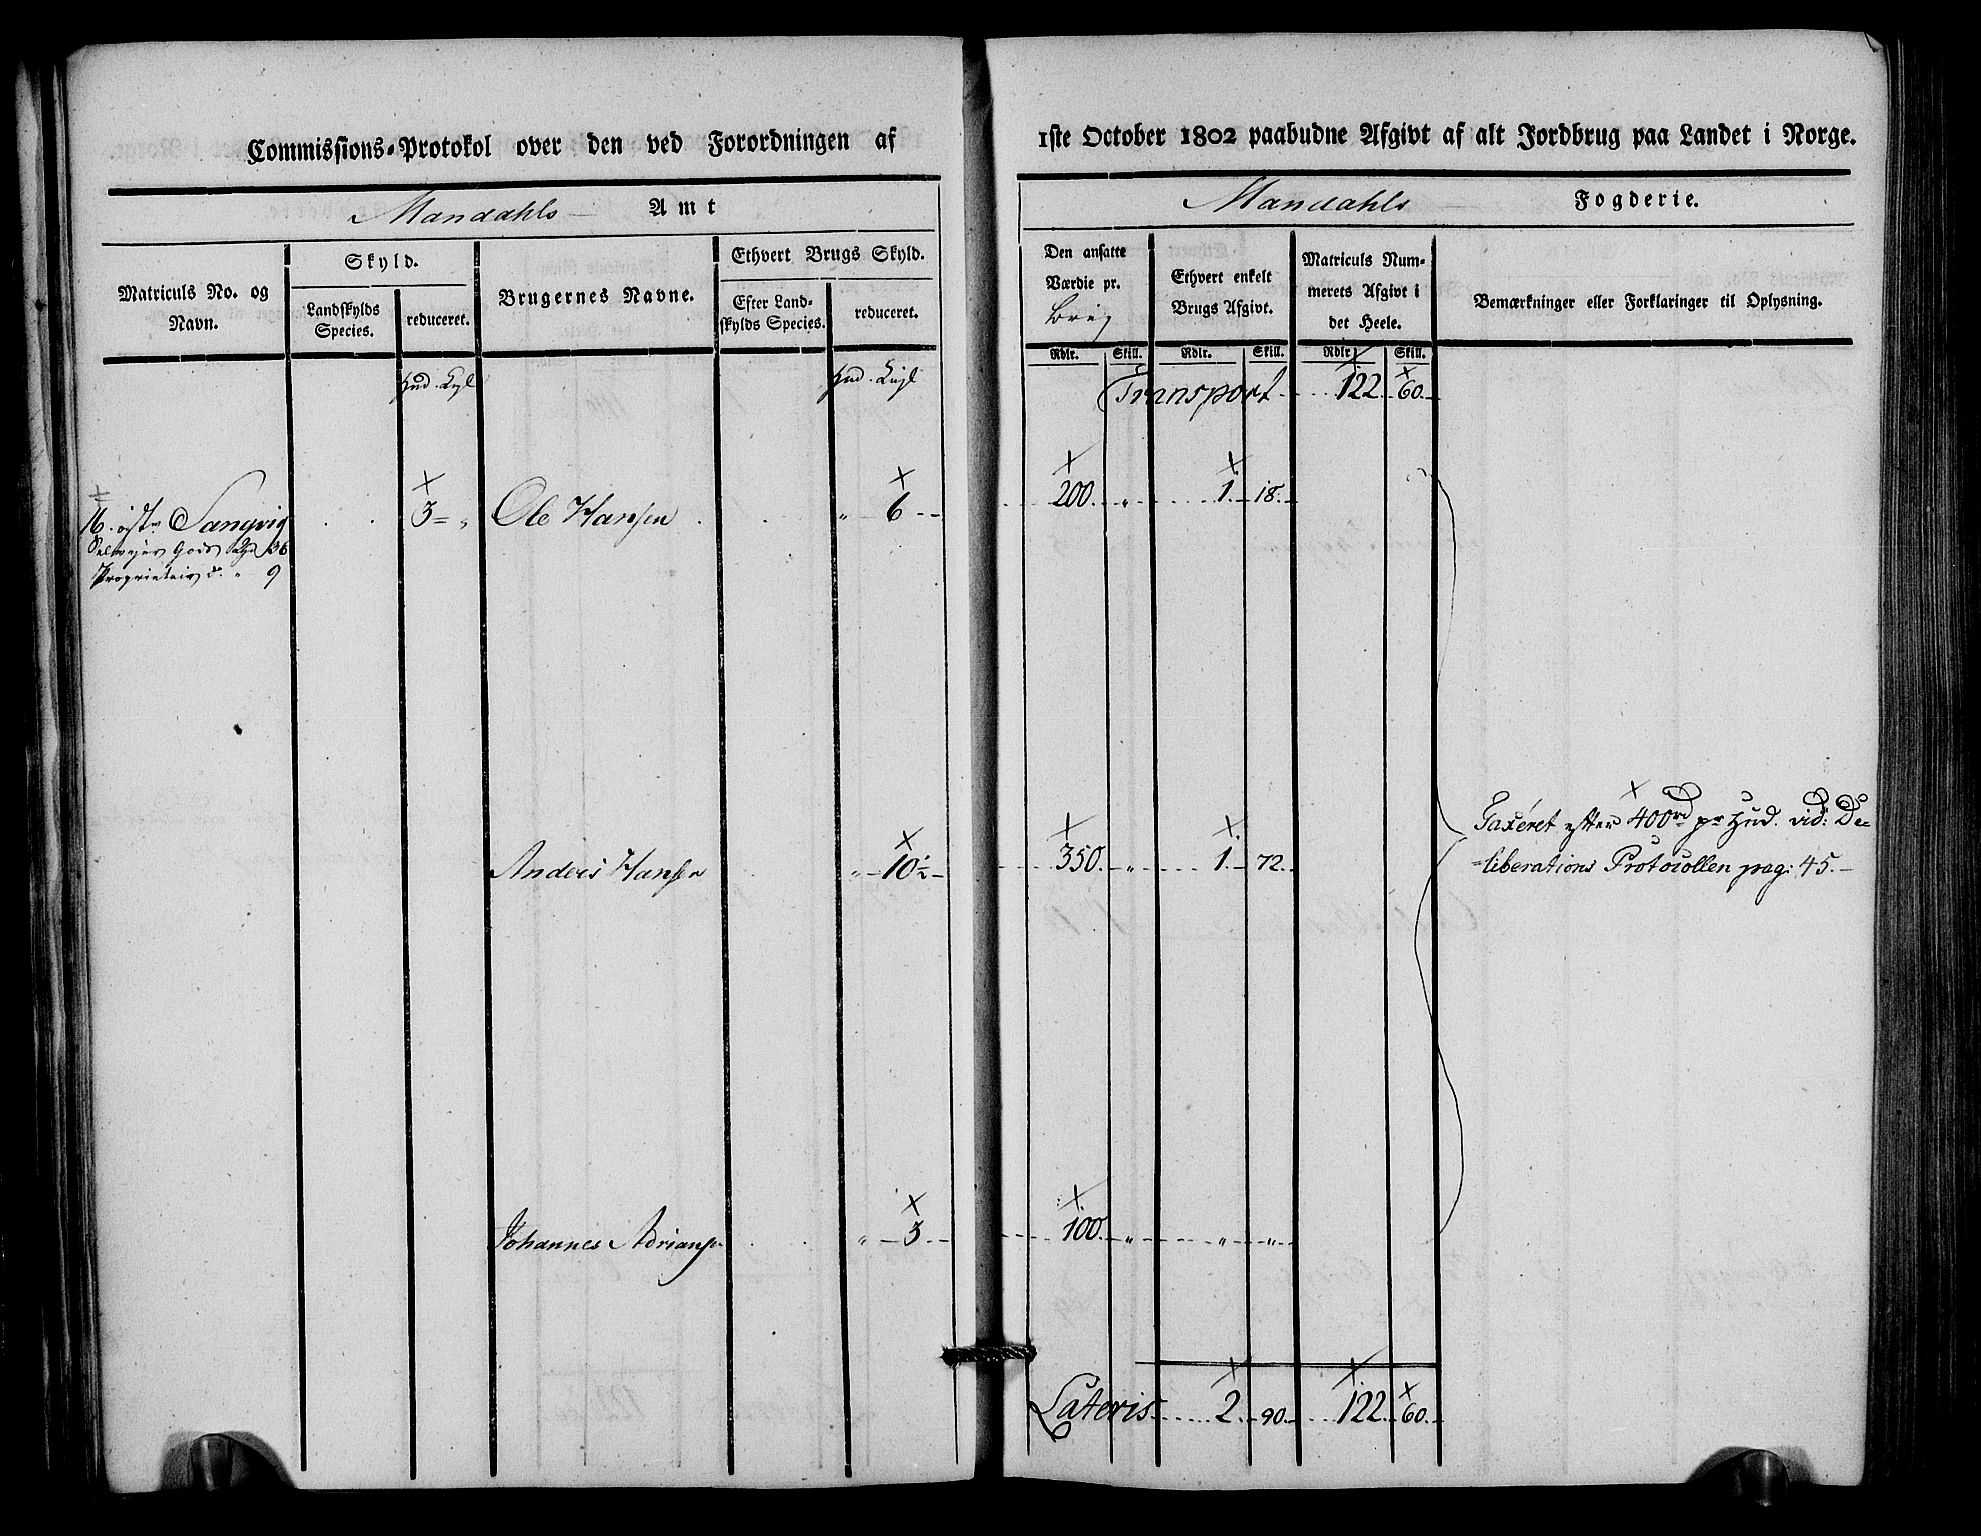 Commissions-Protokol over den ved Forordningen af 1ste October 1802 paabudne Afgivt af alt Jordbrug paa Landet i Norge.
Mandahls Amt
Mandahls Fogderie.
Matriculs No. og Navn.
Skyld.
Landskylds Species.
reduceret.
Brugernes Navne.
Ethvert Brugs Skyld.
Efter Landskylds Species.
reduceret.
Den ansatte Værdie pr.
Ethvert enkelt Brugs Afgivt.
Matriculs Nummerets Afgivt i det Heele.
Bemærkninger eller Forklaringer til Oplysning.
Rdlr. Skill. Rdlr. Skill. Rdlr. Skill.
Hud. Hud.
Transport 122 60
16. Sangvig 3 = „ Ole Hansen „ 6 200. „ 1. 18.
Gods 36
Proprietair d. „ 9
Anders Hansen „ 10½ 350. „ 1. 72.
Taxeret efter 400rd pr Hud. vid: De=
=liberations Protocollen pag: 45.
Johannes Adrians. „ 3 100. „ „ „
Lateris 2. 90. 122. 60.